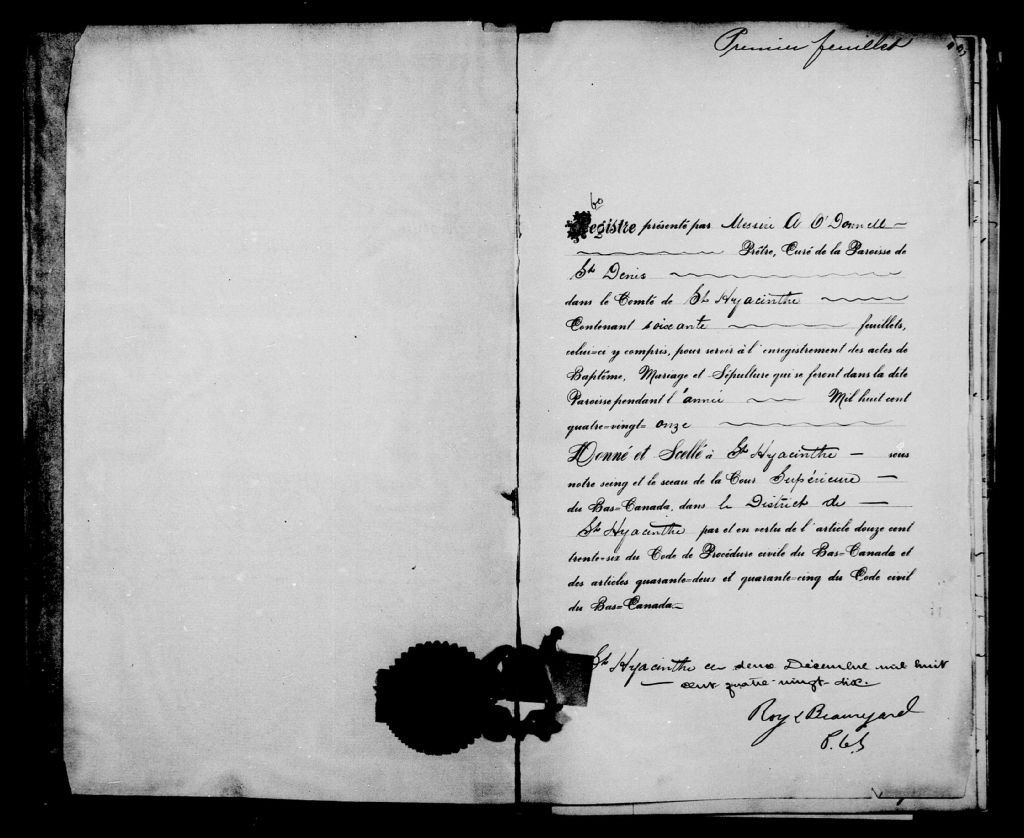 Premier feuillet
60
Registre présenté par Messire A O'Donnell
Prêtre, Curé de la Paroisse de
St Denis
dans le Comté de St Hyacinthe
Contenant soixante feuillets,
celui-ci y compris, pour servir à l'enregistrement des actes de
Baptême, Mariage et Sépulture qui se feront dans la dite
Paroisse pendant l'année Mil huit cent
quatre=vingt= onze
Donné et Scellé à St Hyacinthe sous
notre seing et le sceau de la Cour Supérieure
du Bas=Canada, dans le District de
St Hyacinthe par et en vertu de l'article douze cent
trente-six du Code de Procédure civile du Bas-Canada et
des articles quarante=deux et quarante=cinq du Code civil
du Bas=Canada.
St Hyacinthe ce deux Décembre mil huit
cent quatre-vingt-dix.
Roy & Beauregard
P.C.S